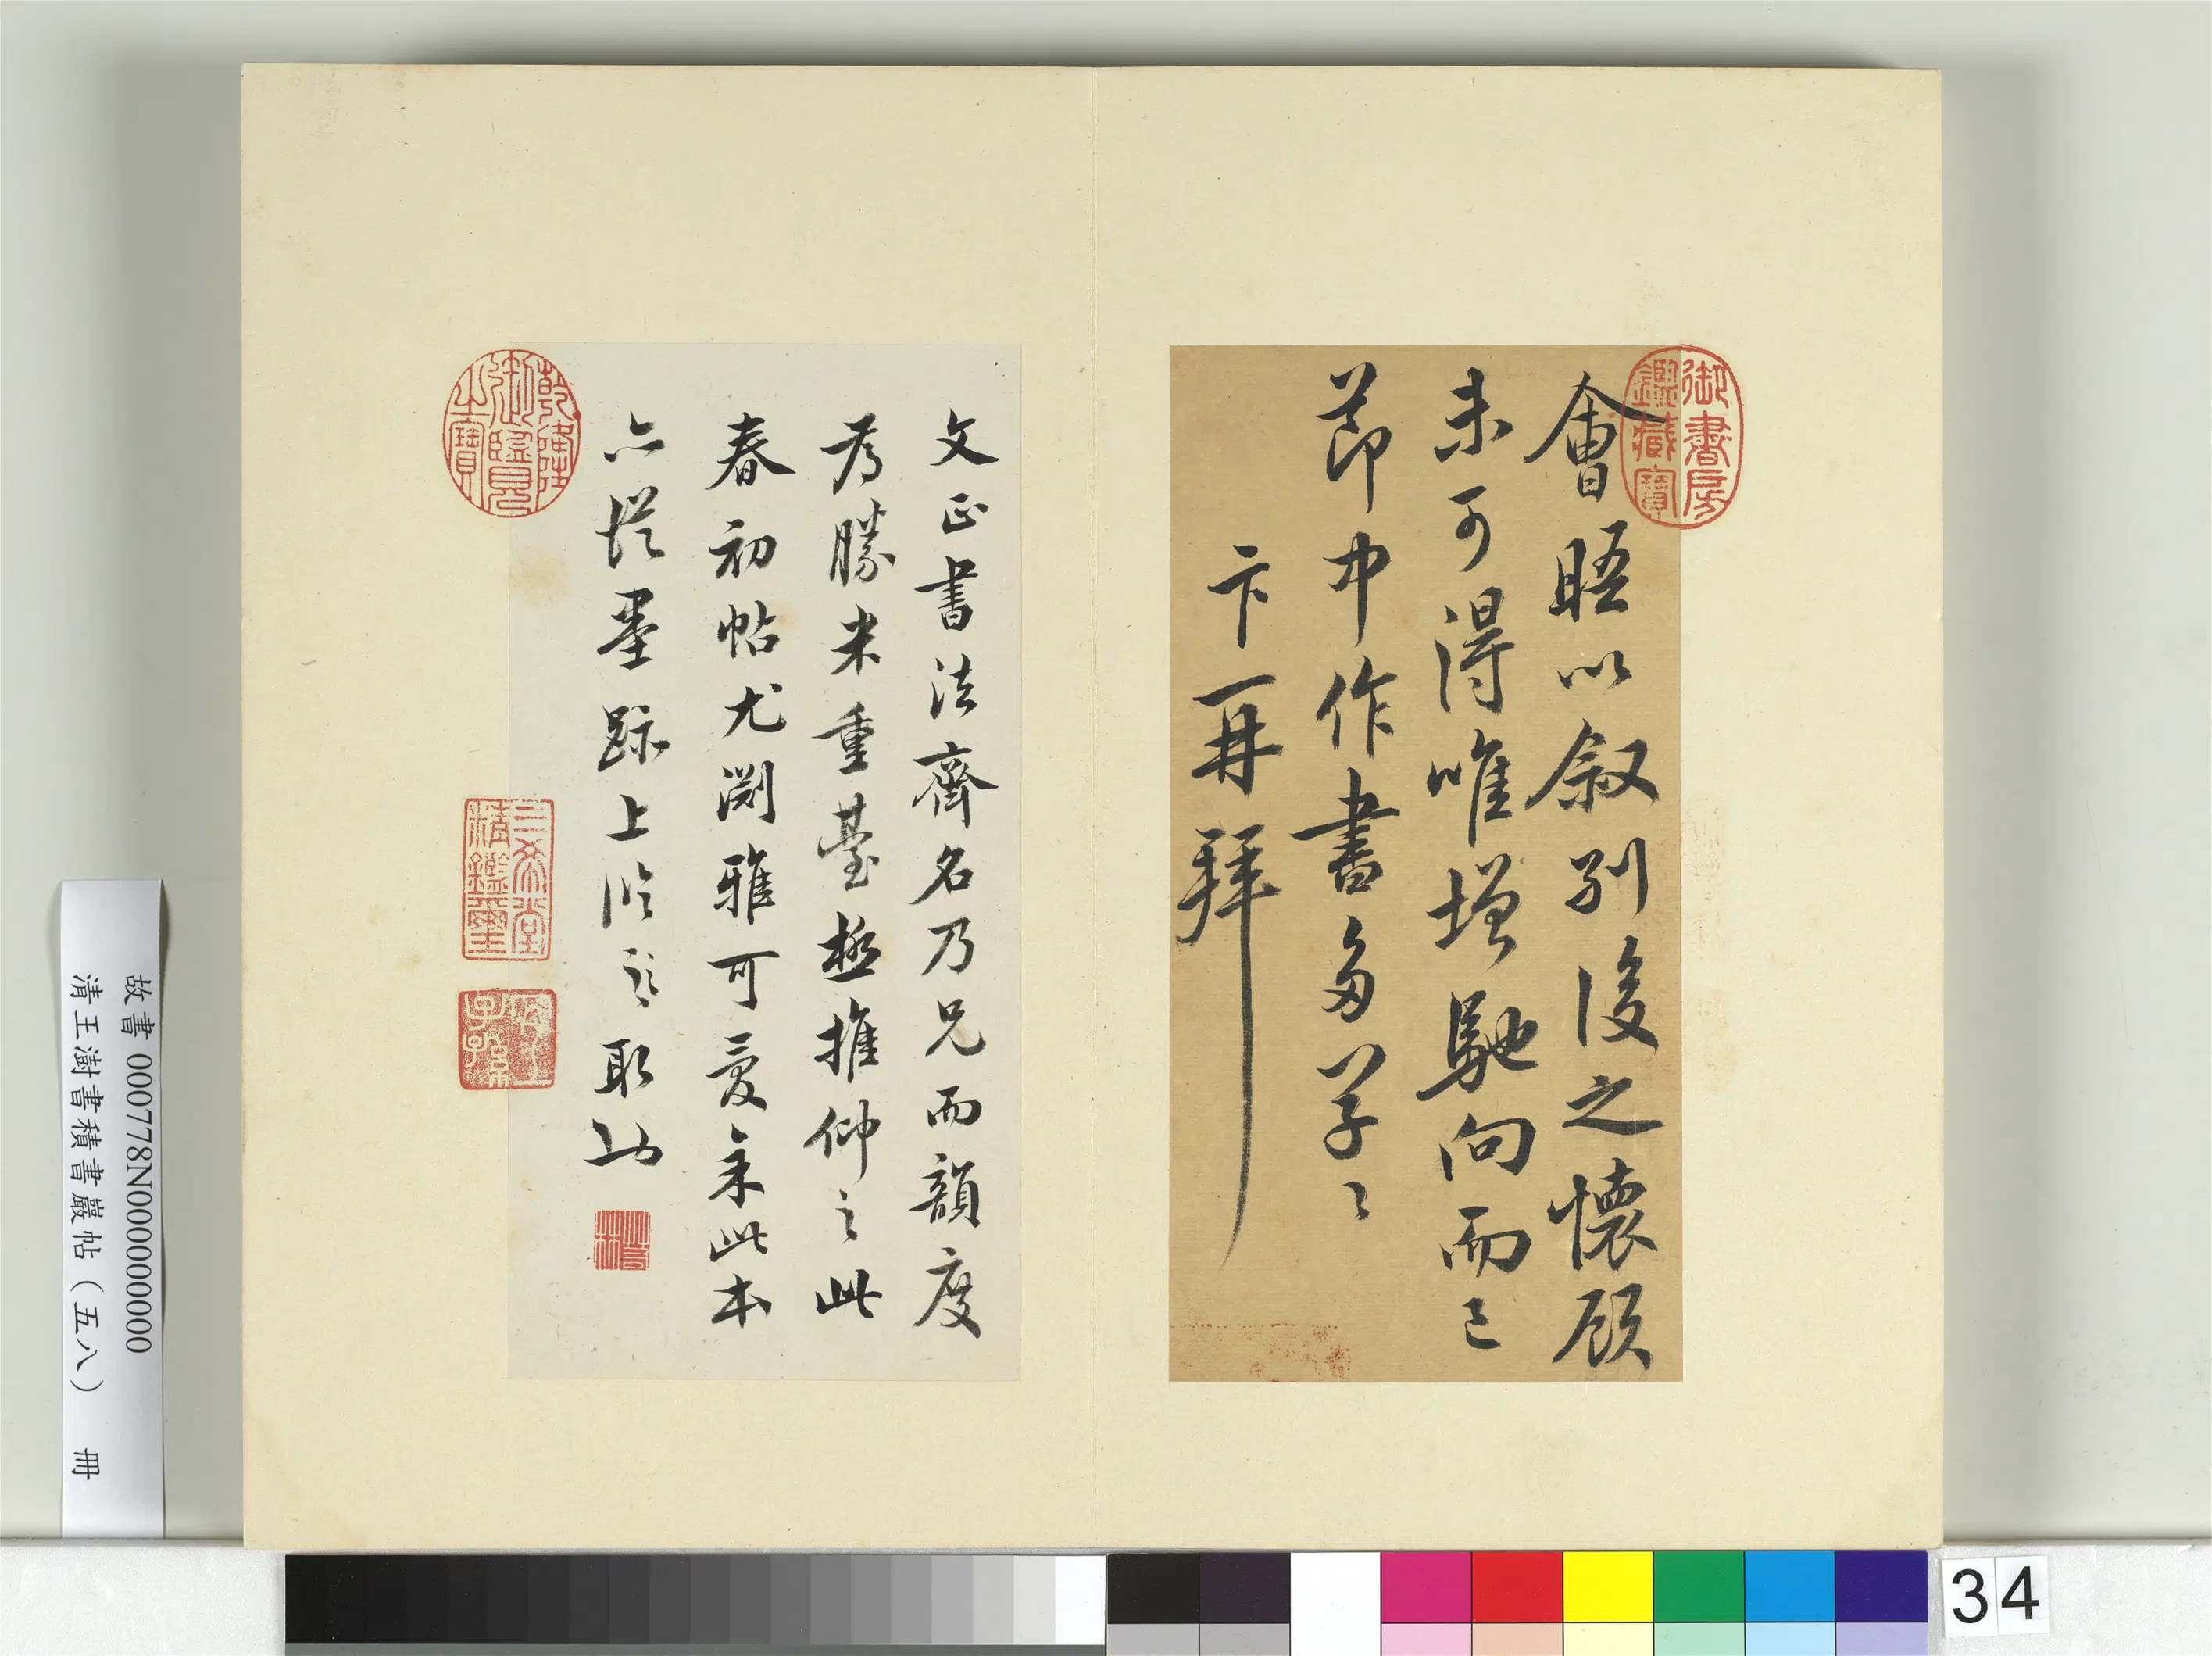 會晤以叙别後之懷顧
未可得唯增馳向而已
節中作書多草草
卞再拜
御書房鑑藏寶
文正書法齊名乃兄而韻度
為勝米重臺極推仰之此
春初帖尤淵雅可愛余此本
亦從墨跡上臨之頗
乾隆御覽之寶
三希堂精鑑璽
宜子孫
故書 000778N000000000
清王澍書積書巖帖(五八) 冊
34